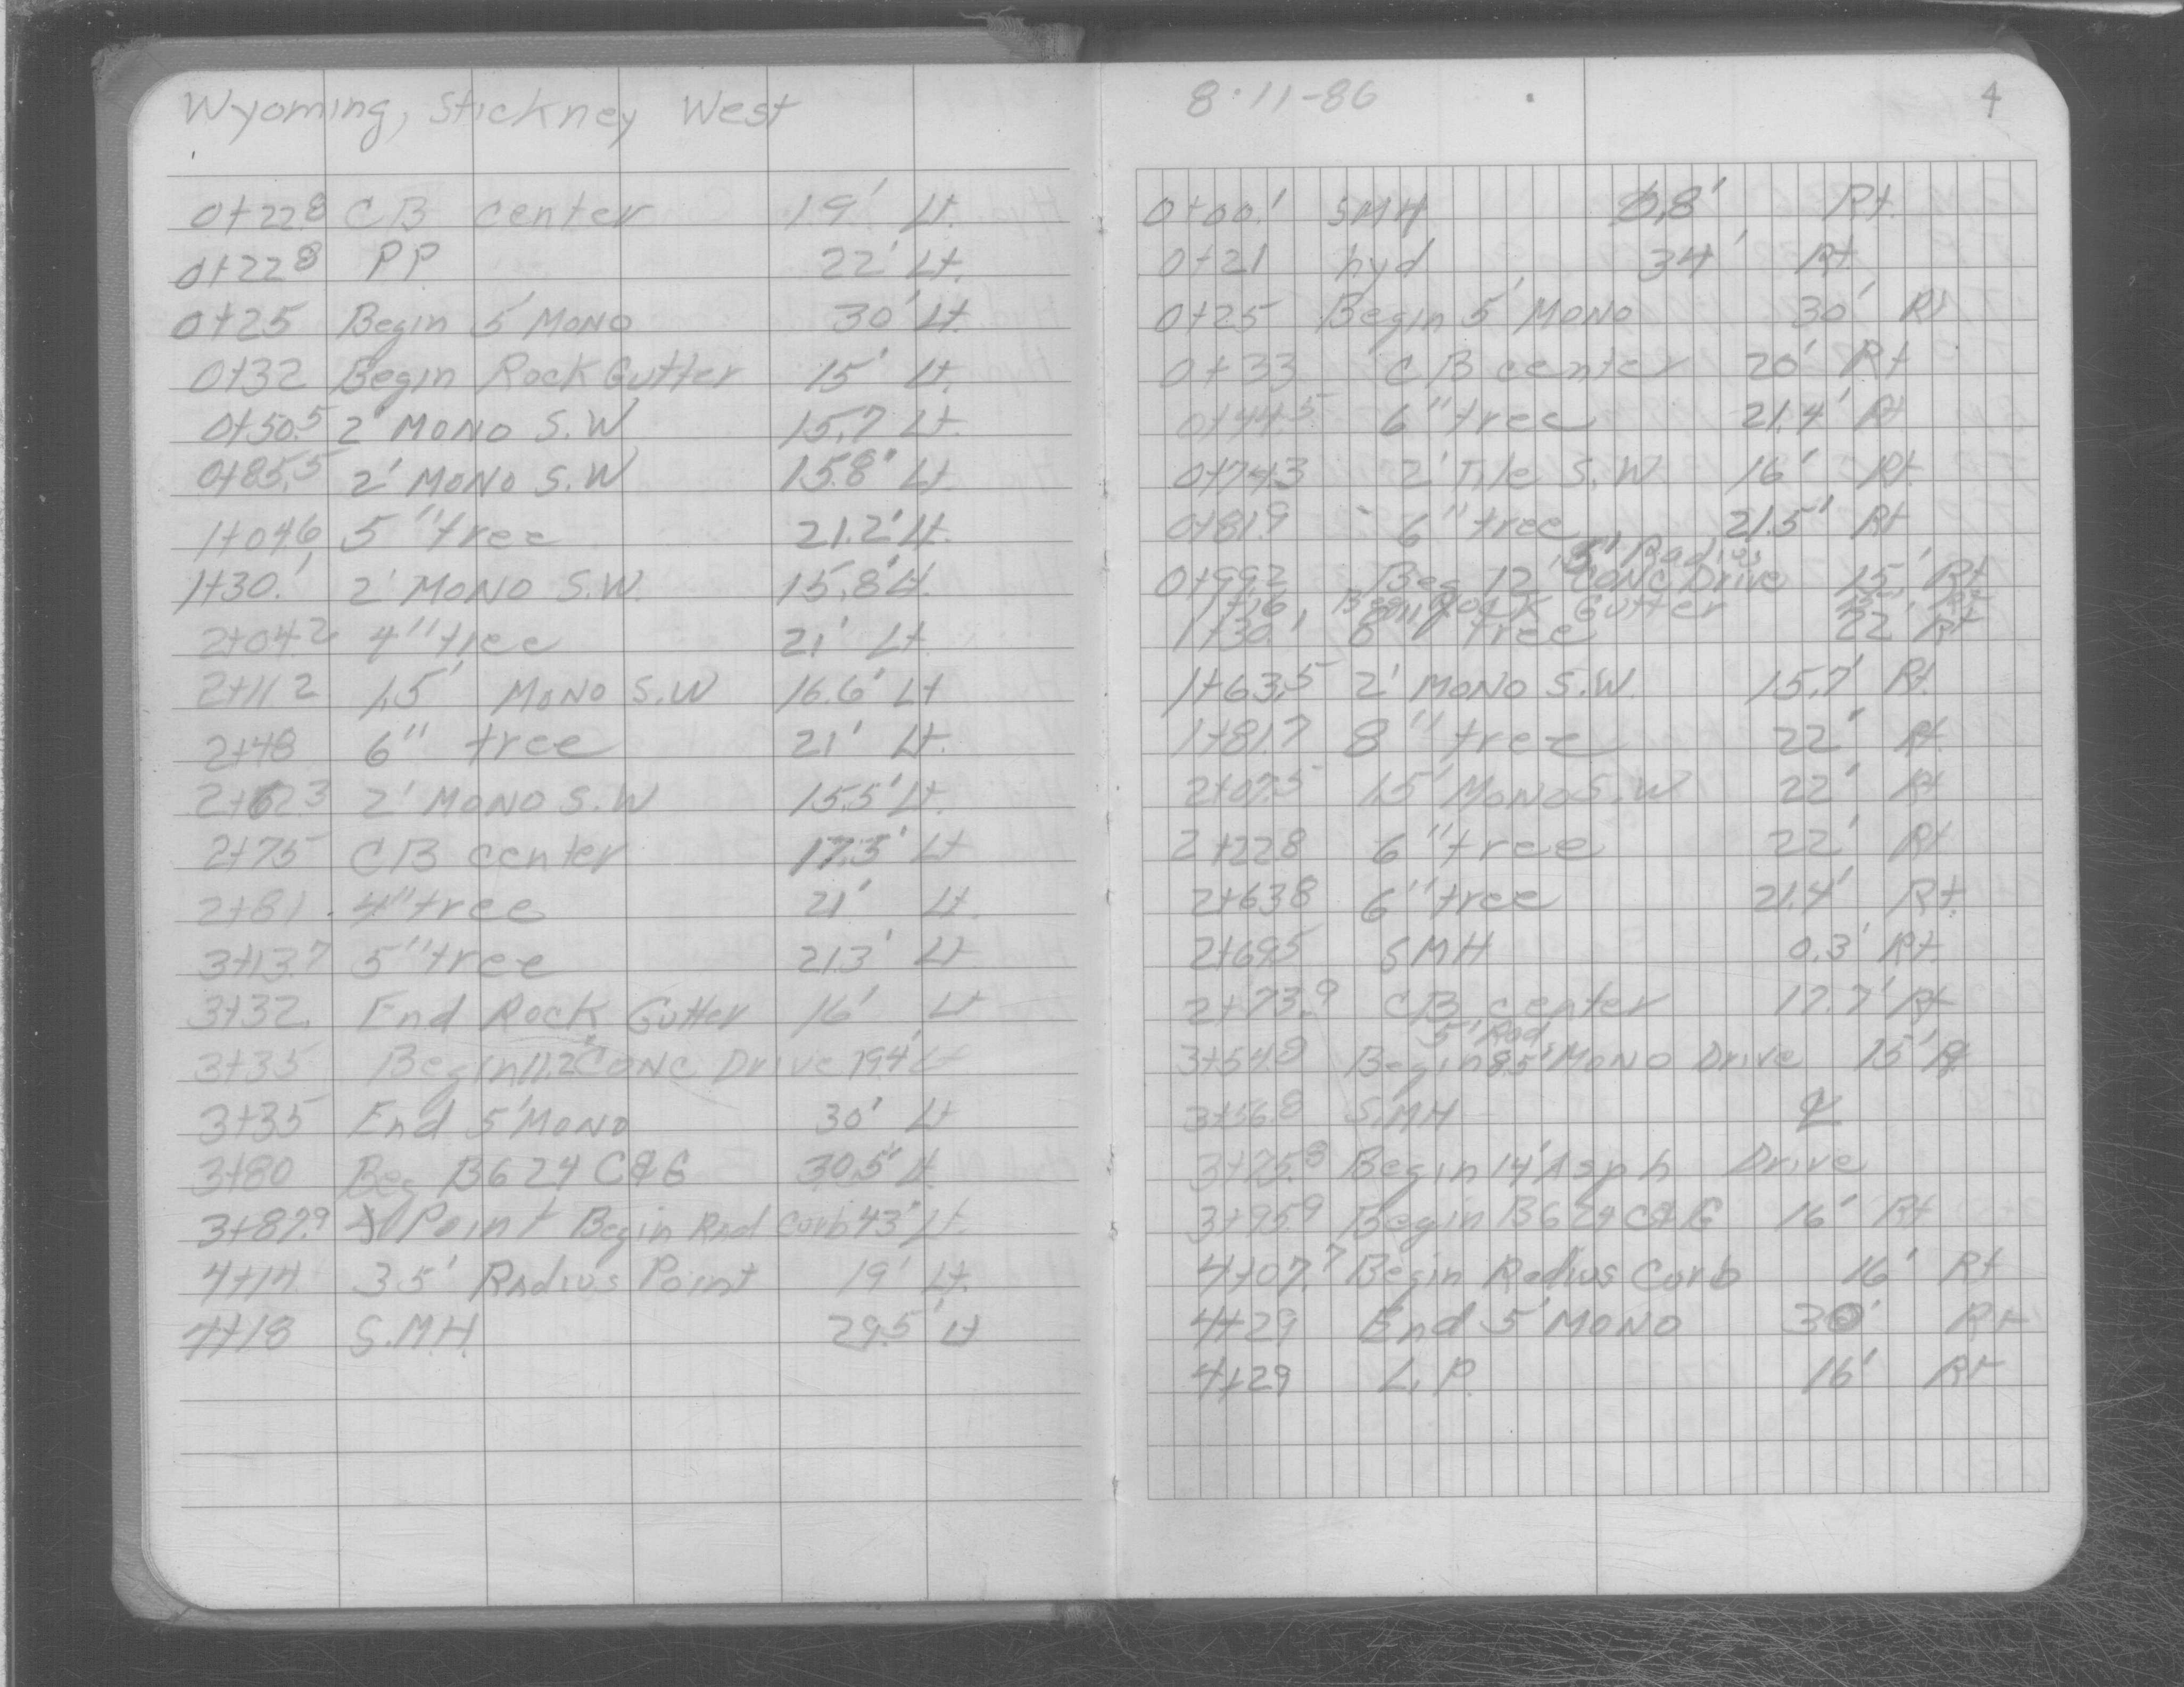 Wyoming, Stickney West
0+22.8 CB center 19' Lt.
0+22.8 PP 22' Lt.
0+25 Begin 5' Mono 30' Lt.
0+32 Begin Rock Gutter 15' Lt.
0+50.5 2' Mono S.W. 15.7 Lt.
0+85.5 2' Mono S.W. 15.8' Lt.
1+04.6 5" tree 21.2' Lt.
1+30.' 2' Mono S.W. 15.8' Lt.
2+04.2 4" tree 21' Lt.
2+11.2 1.5' Mono S.W 16.6' Lt
2+48 6" tree 21' Lt.
2+62.3 2' Mono S.W 15.5' Lt.
2+75 CB center 17.3' Lt
2+81 4" tree 21' Lt.
3+13.7 5" tree 21.3' Lt
3+32. End Rock Gutter 16' Lt
3+35 Begin 11.2' Conc Drive 19.4' Lt
3+35 End 5' Mono 30' Lt
3+80 Beg B624 C&G 30.5' Lt.
3+87.9 Point Begin Rad Curb 43' Lt.
4+14 35' Radius Point 19' Lt.
4+18 S.M.H. 29.5' Lt
8-11-86 4
0+00.' SMH 0.8' Rt.
0+21 hyd 34' Rt.
0+25 Begin 5' Mono 30' Rt
0+33 CB center 20' Rt
0+44.5 6" tree 21.4' Rt
0+74.3 2' Tile S.W. 16' Rt.
0+81.9 6" tree 21.5' Rt
5' Radius
0+99.2 Beg 12' Conc Drive 15' Rt
1+16 Rock Gutter Rt
1+30' tree 22' Rt
1+63.5 2' Mono S.W. 15.7' Rt.
1+81.7 8" tree 22' Rt.
2+07.5 1.5' Mono S.W 22' Rt
2+22.8 6" tree 22' Rt
2+63.8 6" tree 21.4' Rt.
2+69.5 SMH 0.3' Rt.
2+73.9 CB center 17.7' Rt
5' Rad
3+54.8 Begin 8.5' Mono Drive 15' Rt
3+56.8 S.MH ℄
3+75.8 Begin 14' Asph Drive
3+95.9 Begin B624 C&G 16' Rt
4+07.7 Begin Radius Curb 16' Rt
4+29 End 5' Mono 30' Rt
4+29 L.P. 16' Rt